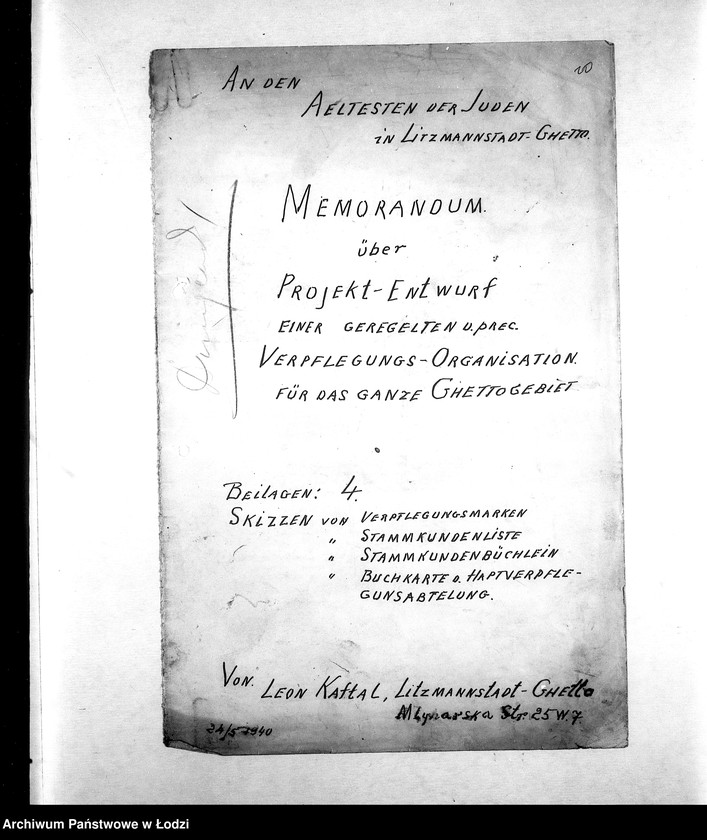 20
AN DEN
AELTESTEN DER JUDEN
in LITZMANNSTADT-GHETTO.
MEMORANDUM.
über
PROJEKT-ENTWURF
EINER GEREGELTEN U. PREC.
VERPFLEGUNGS-ORGANISATION.
FÜR DAS GANZE GHETTOGEBIET
BEILAGEN: 4.
SKIZZEN VON VERPFLEGUNGSMARKEN
" STAMMKUNDENLISTE
" STAMMKUNDENBÜCHLEIN
" BUCHKARTE D. HAPTVERPFLE-
GUNSABTELUNG.
VON. LEON KAttAL, LITZMANNSTADT-GHETTO
Młynarska Str. 25 W. 7
24/5 1940
Archiwum Państwowe w Łodzi